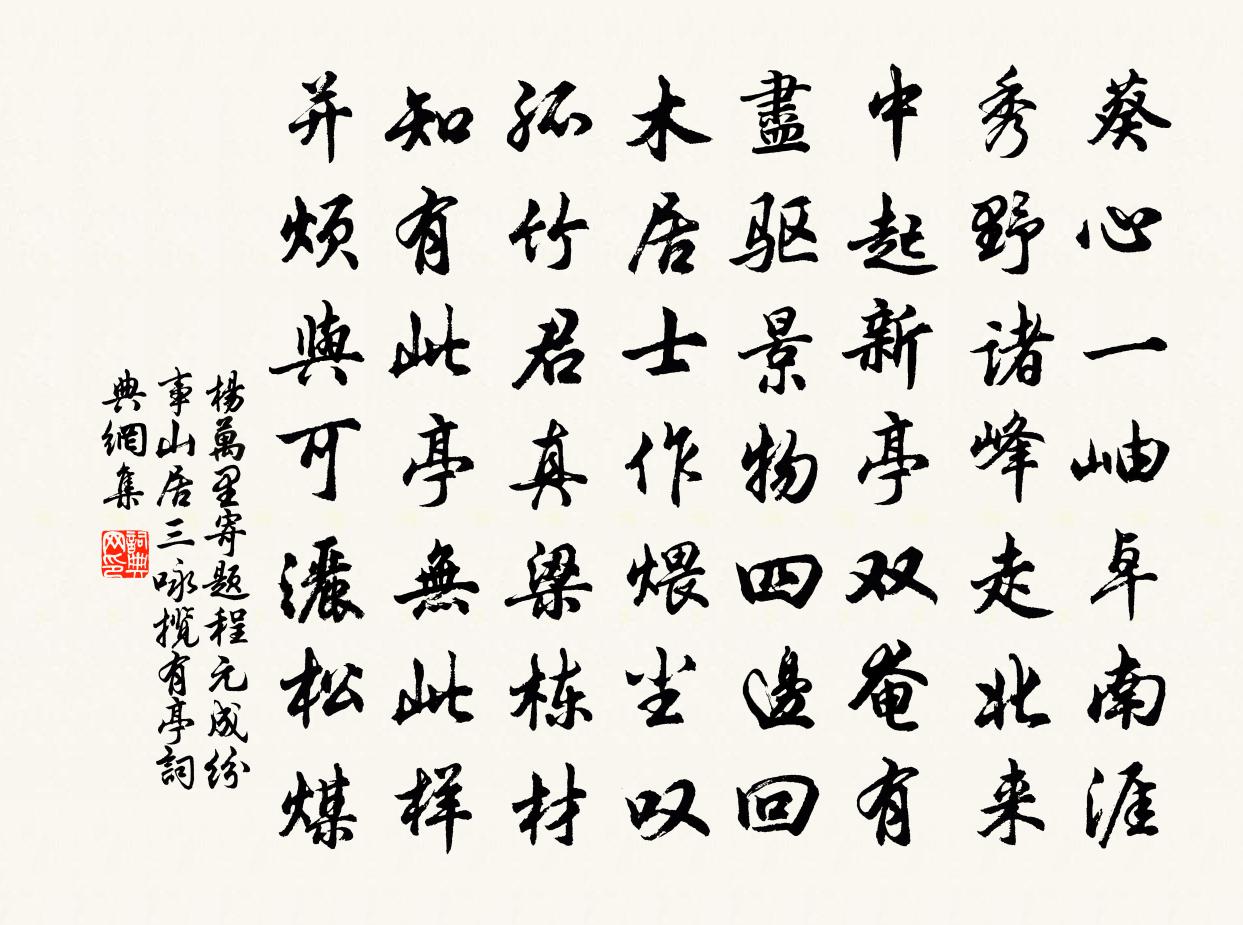 葵心一岫卓南涯
秀野诸峰走北来
中起新亭双奄有
盡驱景物四邊回
木居士作煨尘叹
孤竹君真梁栋材
知有此亭無此样
并烦與可灑松煤
楊萬里寄题程元成給
事山居三咏揽有亭詞
典網集
詞典网印